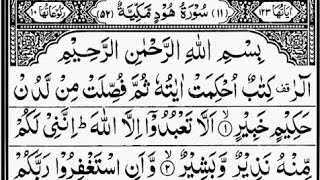 اٰیَاتُهَا ۱۲۳ (۱۱) سُوْرَةُ هُوْدٍ مَّكِّیَّةٌ (۵۲) رُكُوْعَاتُهَا ۱۰
بِسْمِ اللّٰهِ الرَّحْمٰنِ الرَّحِیْمِ
الٓرٰ قف كِتٰبٌ اُحْكِمَتْ اٰیٰتُهٗ ثُمَّ فُصِّلَتْ مِنْ لَّدُنْ
حَكِیْمٍ خَبِیْرٍۙ ۱ اَلَّا تَعْبُدُوْۤا اِلَّا اللّٰهَؕ اِنَّنِیْ لَكُمْ
مِّنْهُ نَذِیْرٌ وَّبَشِیْرٌۙ ۲ وَّاَنِ اسْتَغْفِرُوْا رَبَّكُمْ